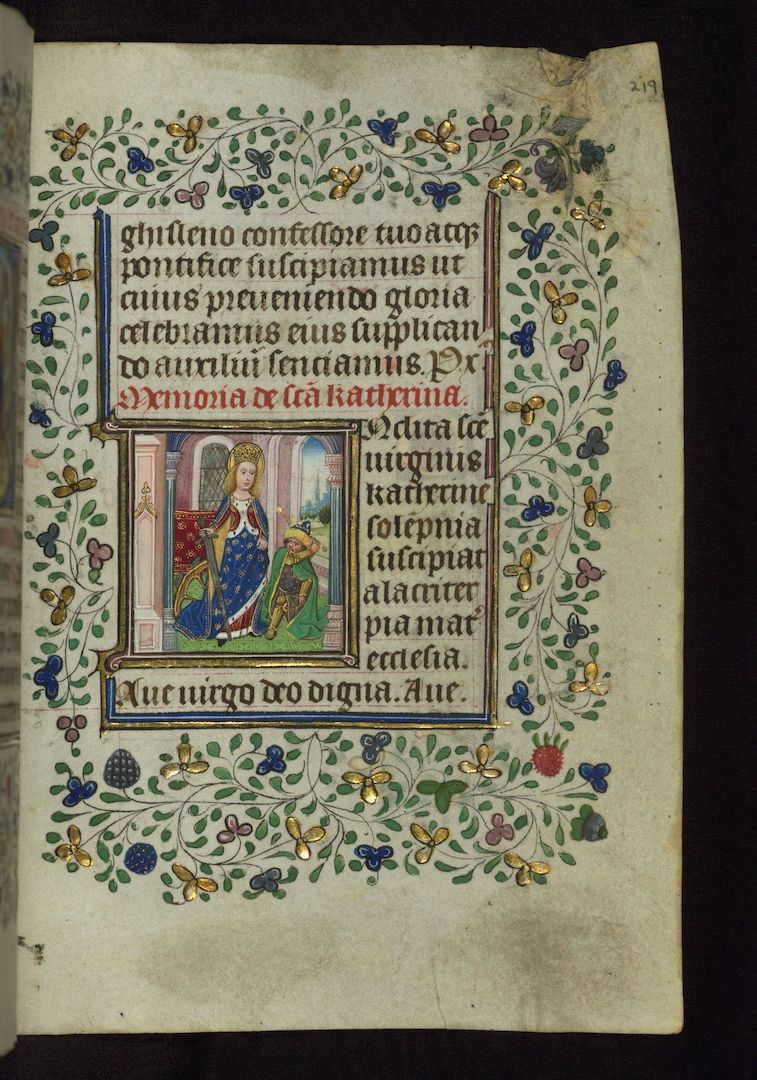 219
ghisleno confessore tuo atqȝ
pontifice suscipiamus ut
cuius preueniendo gloria
celebramus eius supplican
do auxiliū senciamus. Px̄
Memoria de scā katherina.
Nclita scē
uirginis
katherine
solēpnia
suscipiat
alacriter
pia mat᷑
ecclesia.
Aue uirgo deo digna. Aue.